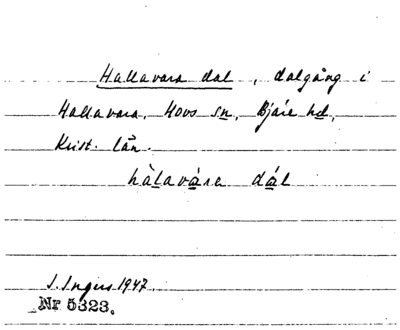 Hallavara dal, dalgång i
Hallavara, Hovs sn, Bjäre hd,
Krist. län.
hàlavára dál
I. Ingers 1947.
Nr 5323.